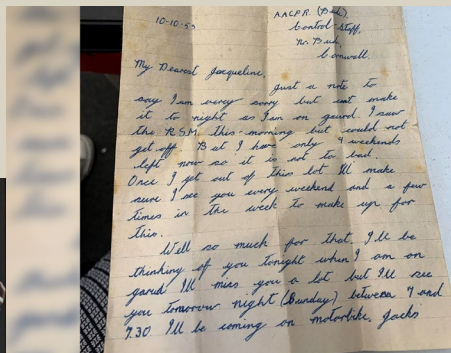 10-10-59
AACPR (Bud),
Control-Staff,
Nr. Bude,
Cornwall.
My Dearest Jacqueline,
just a note to
say I am every sorry but cant make
it to night as I am on geurd. I saw
the R.S.M. this-morning but could not
get off. But I have only 4 weekends
left now so it is not to bad.
Once I get out of this lot I'll make
sure I see you every weekend and a few
times in the week to make up for
this.
Well so much for that, I'll be
thinking of you tonight when I am on
gared I'll miss you a lot but I'll see
you tomorrow night (Sunday) between 7 and
7.30 I'll be coming on motorbike, Jacks